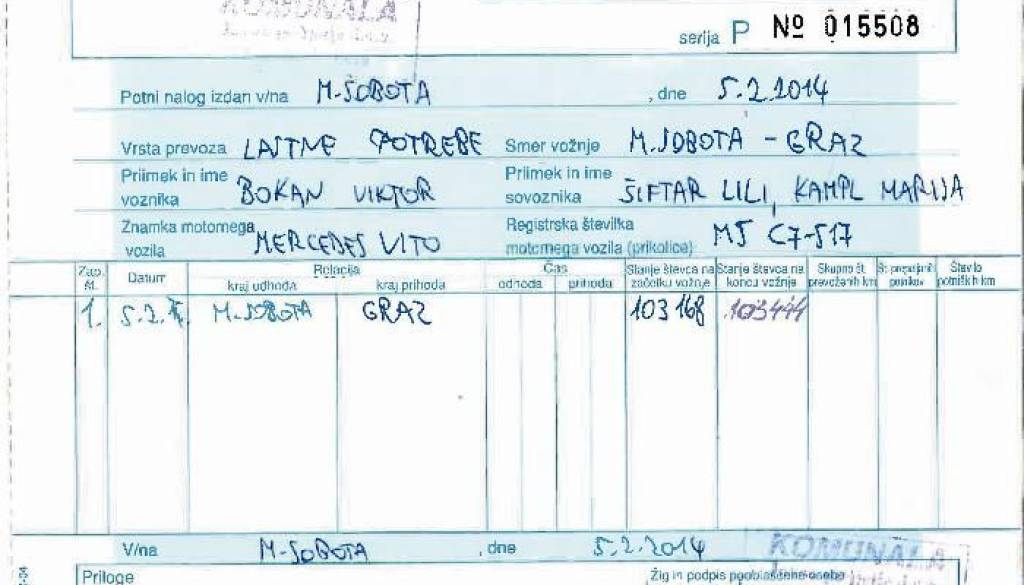 KOMUNALA
serija P № 015508
Potni nalog izdan v/na M-SOBOTA , dne 5.2.2014
Vrsta prevoza LASTNE POTREBE Smer vožnje M.SOBOTA - GRAZ
Priimek in ime voznika BOKAN VIKTOR Priimek in ime sovoznika ŠIFTAR LILI, KAMPL MARIJA
Znamka motornega vozila MERCEDES VITO Registrska številka motornega vozila (prikolice) MS C7-517
Zap. št. Datum Relacija Čas Stanje števca na začetku vožnje Stanje števca na koncu vožnje Skupno št. prevoženih km Št. prepeljanih potnikov Število potniških km
kraj odhoda kraj prihoda odhoda prihoda
1. 5.2. M.SOBOTA GRAZ 103168 103444
V/na M-SOBOTA , dne 5.2.2014
KOMUNALA
Priloge Žig in podpis pooblaščene osebe